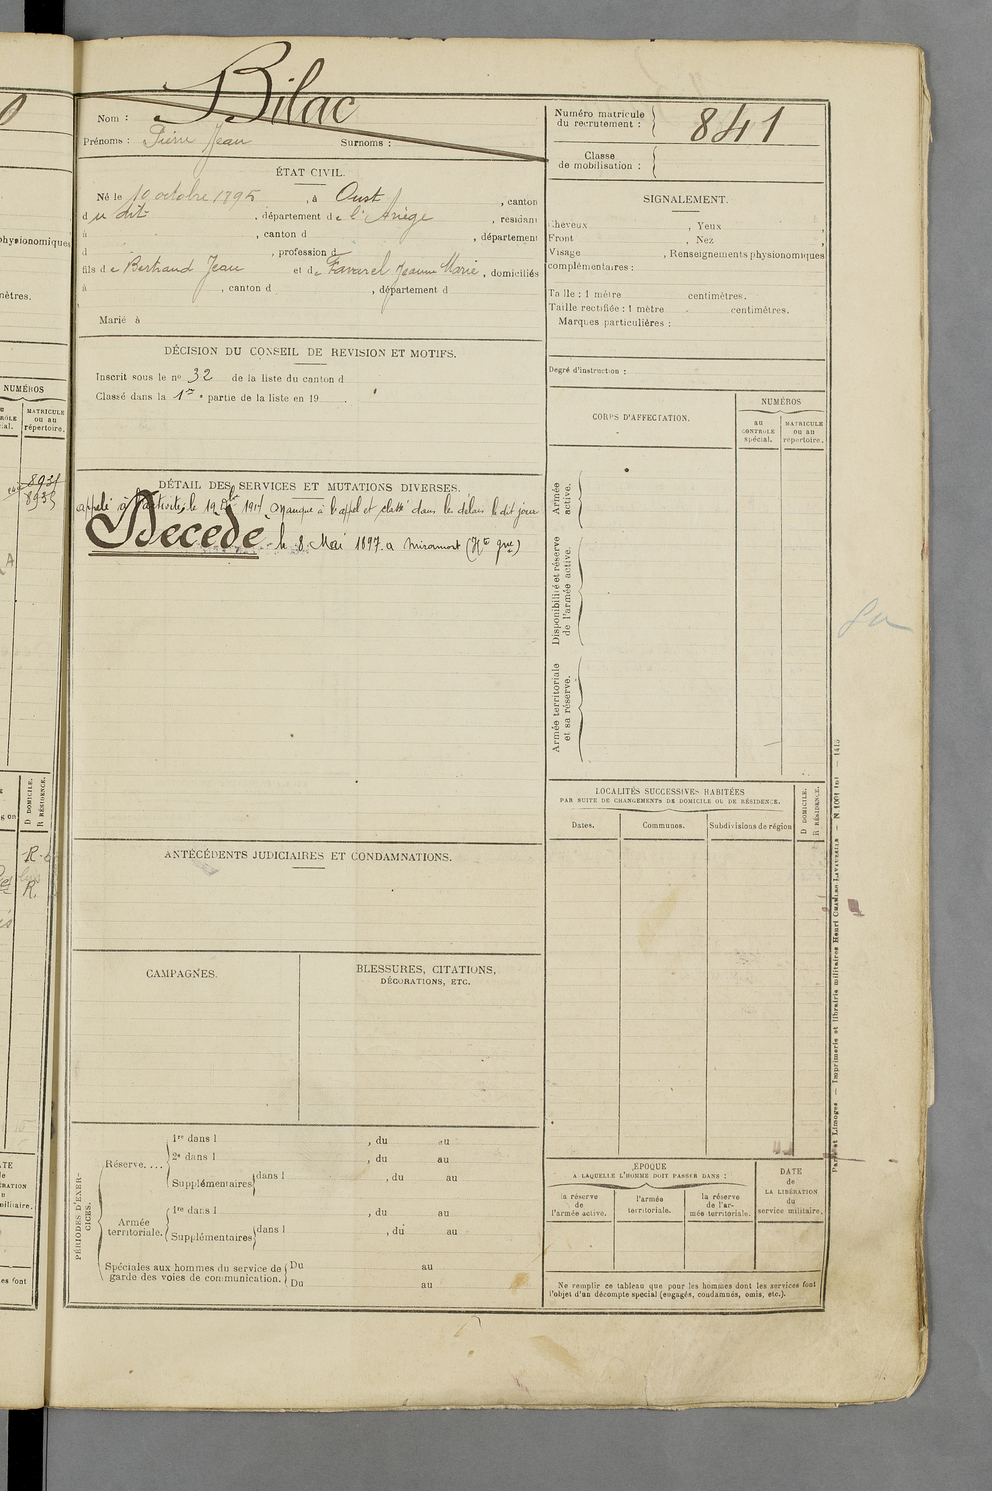 Bilac
Nom :
Prénoms : Pierre Jean Surnoms :
Numéro matricule
du recrutement : 841
Classe
de mobilisation :
ÉTAT CIVIL.
Né le 10 octobre 1895, à Oust, canton
du dit, département de l'Ariège, résidant
à , canton d , département
, profession d
fils de Bertrand Jean et de Favarel Jeanne Marie, domiciliés
à , canton d , département d
Marié à
SIGNALEMENT.
Cheveux , Yeux ,
Front , Nez ,
Visage , Renseignements physionomiques
complémentaires :
Taille : 1 mètre centimètres.
Taille rectifiée : 1 mètre centimètres.
Marques particulières :
Degré d'instruction :
DÉCISION DU CONSEIL DE REVISION ET MOTIFS.
Inscrit sous le nº 32 de la liste du canton d
Classé dans la 1re partie de la liste en 19 .
DÉTAIL DES SERVICES ET MUTATIONS DIVERSES.
appelé à l'activité le 19 Dbre 1914 manque à l'appel et classé dans les délais le dit jour
Décédé le 8 Mai 1897 a Miramont (Hte Gne)
CORPS D'AFFECTATION.
NUMÉROS
au
CONTROLE
spécial.
MATRICULE
ou au
répertoire.
Armée
active.
Disponibilité et réserve
de l'armée active.
Armée territoriale
et sa réserve.
LOCALITÉS SUCCESSIVES HABITÉES
PAR SUITE DE CHANGEMENTS DE DOMICILE OU DE RÉSIDENCE.
Dates. Communes. Subdivisions de région
D DOMICILE.
R RÉSIDENCE.
ANTÉCÉDENTS JUDICIAIRES ET CONDAMNATIONS.
CAMPAGNES.
BLESSURES, CITATIONS,
DÉCORATIONS, ETC.
PÉRIODES D'EXERCICES.
Réserve....
1re dans l , du au
2e dans l , du au
Supplémentaires dans l , du au
Armée
territoriale.
1re dans l , du au
Supplémentaires dans l , du au
Spéciales aux hommes du service de
garde des voies de communication.
Du au
Du au
ÉPOQUE
A LAQUELLE L'HOMME DOIT PASSER DANS :
la réserve
de
l'armée active.
l'armée
territoriale.
la réserve
de l'ar-
mée territoriale.
DATE
de
LA LIBÉRATION
du
service militaire.
Ne remplir ce tableau que pour les hommes dont les services font
l'objet d'un décompte spécial (engagés, condamnés, omis, etc.).
Paris et Limoges — Imprimerie et librairie militaires Henri CHARLES-LAVAUZELLE
physionomiques
mètres.
NUMÉROS
MATRICULE
ou au
répertoire.
8935
D DOMICILE.
R RÉSIDENCE.
R
R